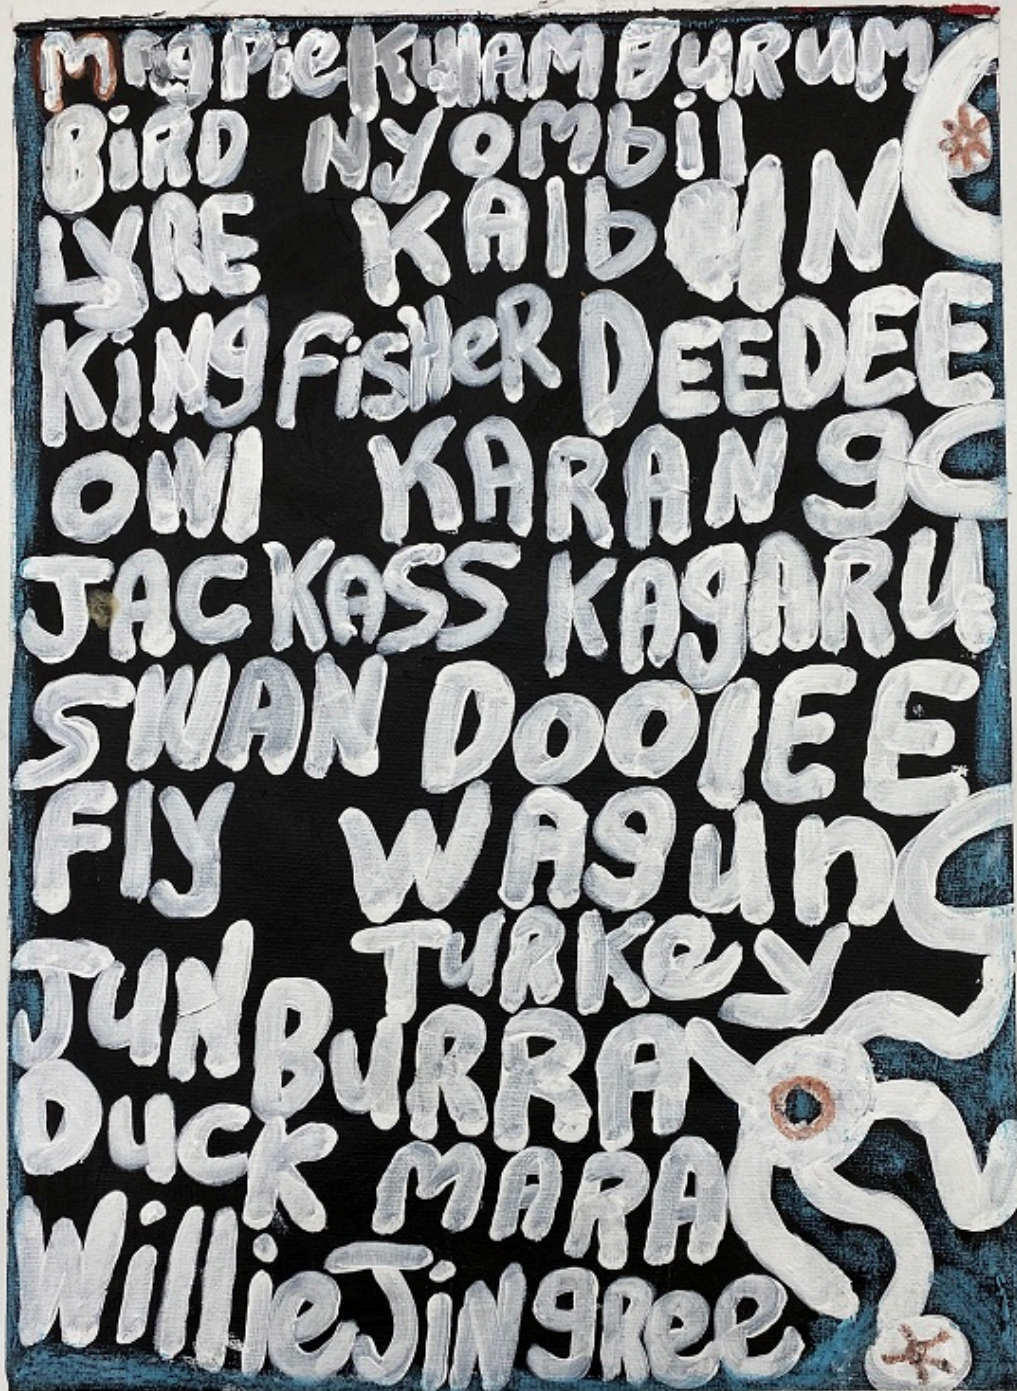 MagPie KulAM BuRuM
BiRD NyoMbil
LyRE KAlbuIN
KiNg fisHeR DEEDEE
OWl KARANg
JACKASS KAgARu
SWAN DOOlEE
FlY WAgun
TuRKey
JuN BuRRA
DucK MARA
Willie JiNgRee